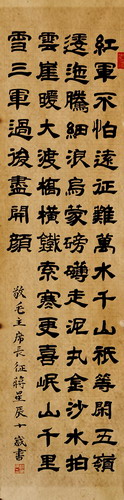 紅軍不怕遠征難萬水千山祇等閑五嶺
逶迤騰細浪烏蒙磅礴走泥丸金沙水拍
雲崖暖大渡橋橫鐵索寒更喜岷山千里
雪三軍過後盡開顏
敬毛主席長征蔣星辰十歲書